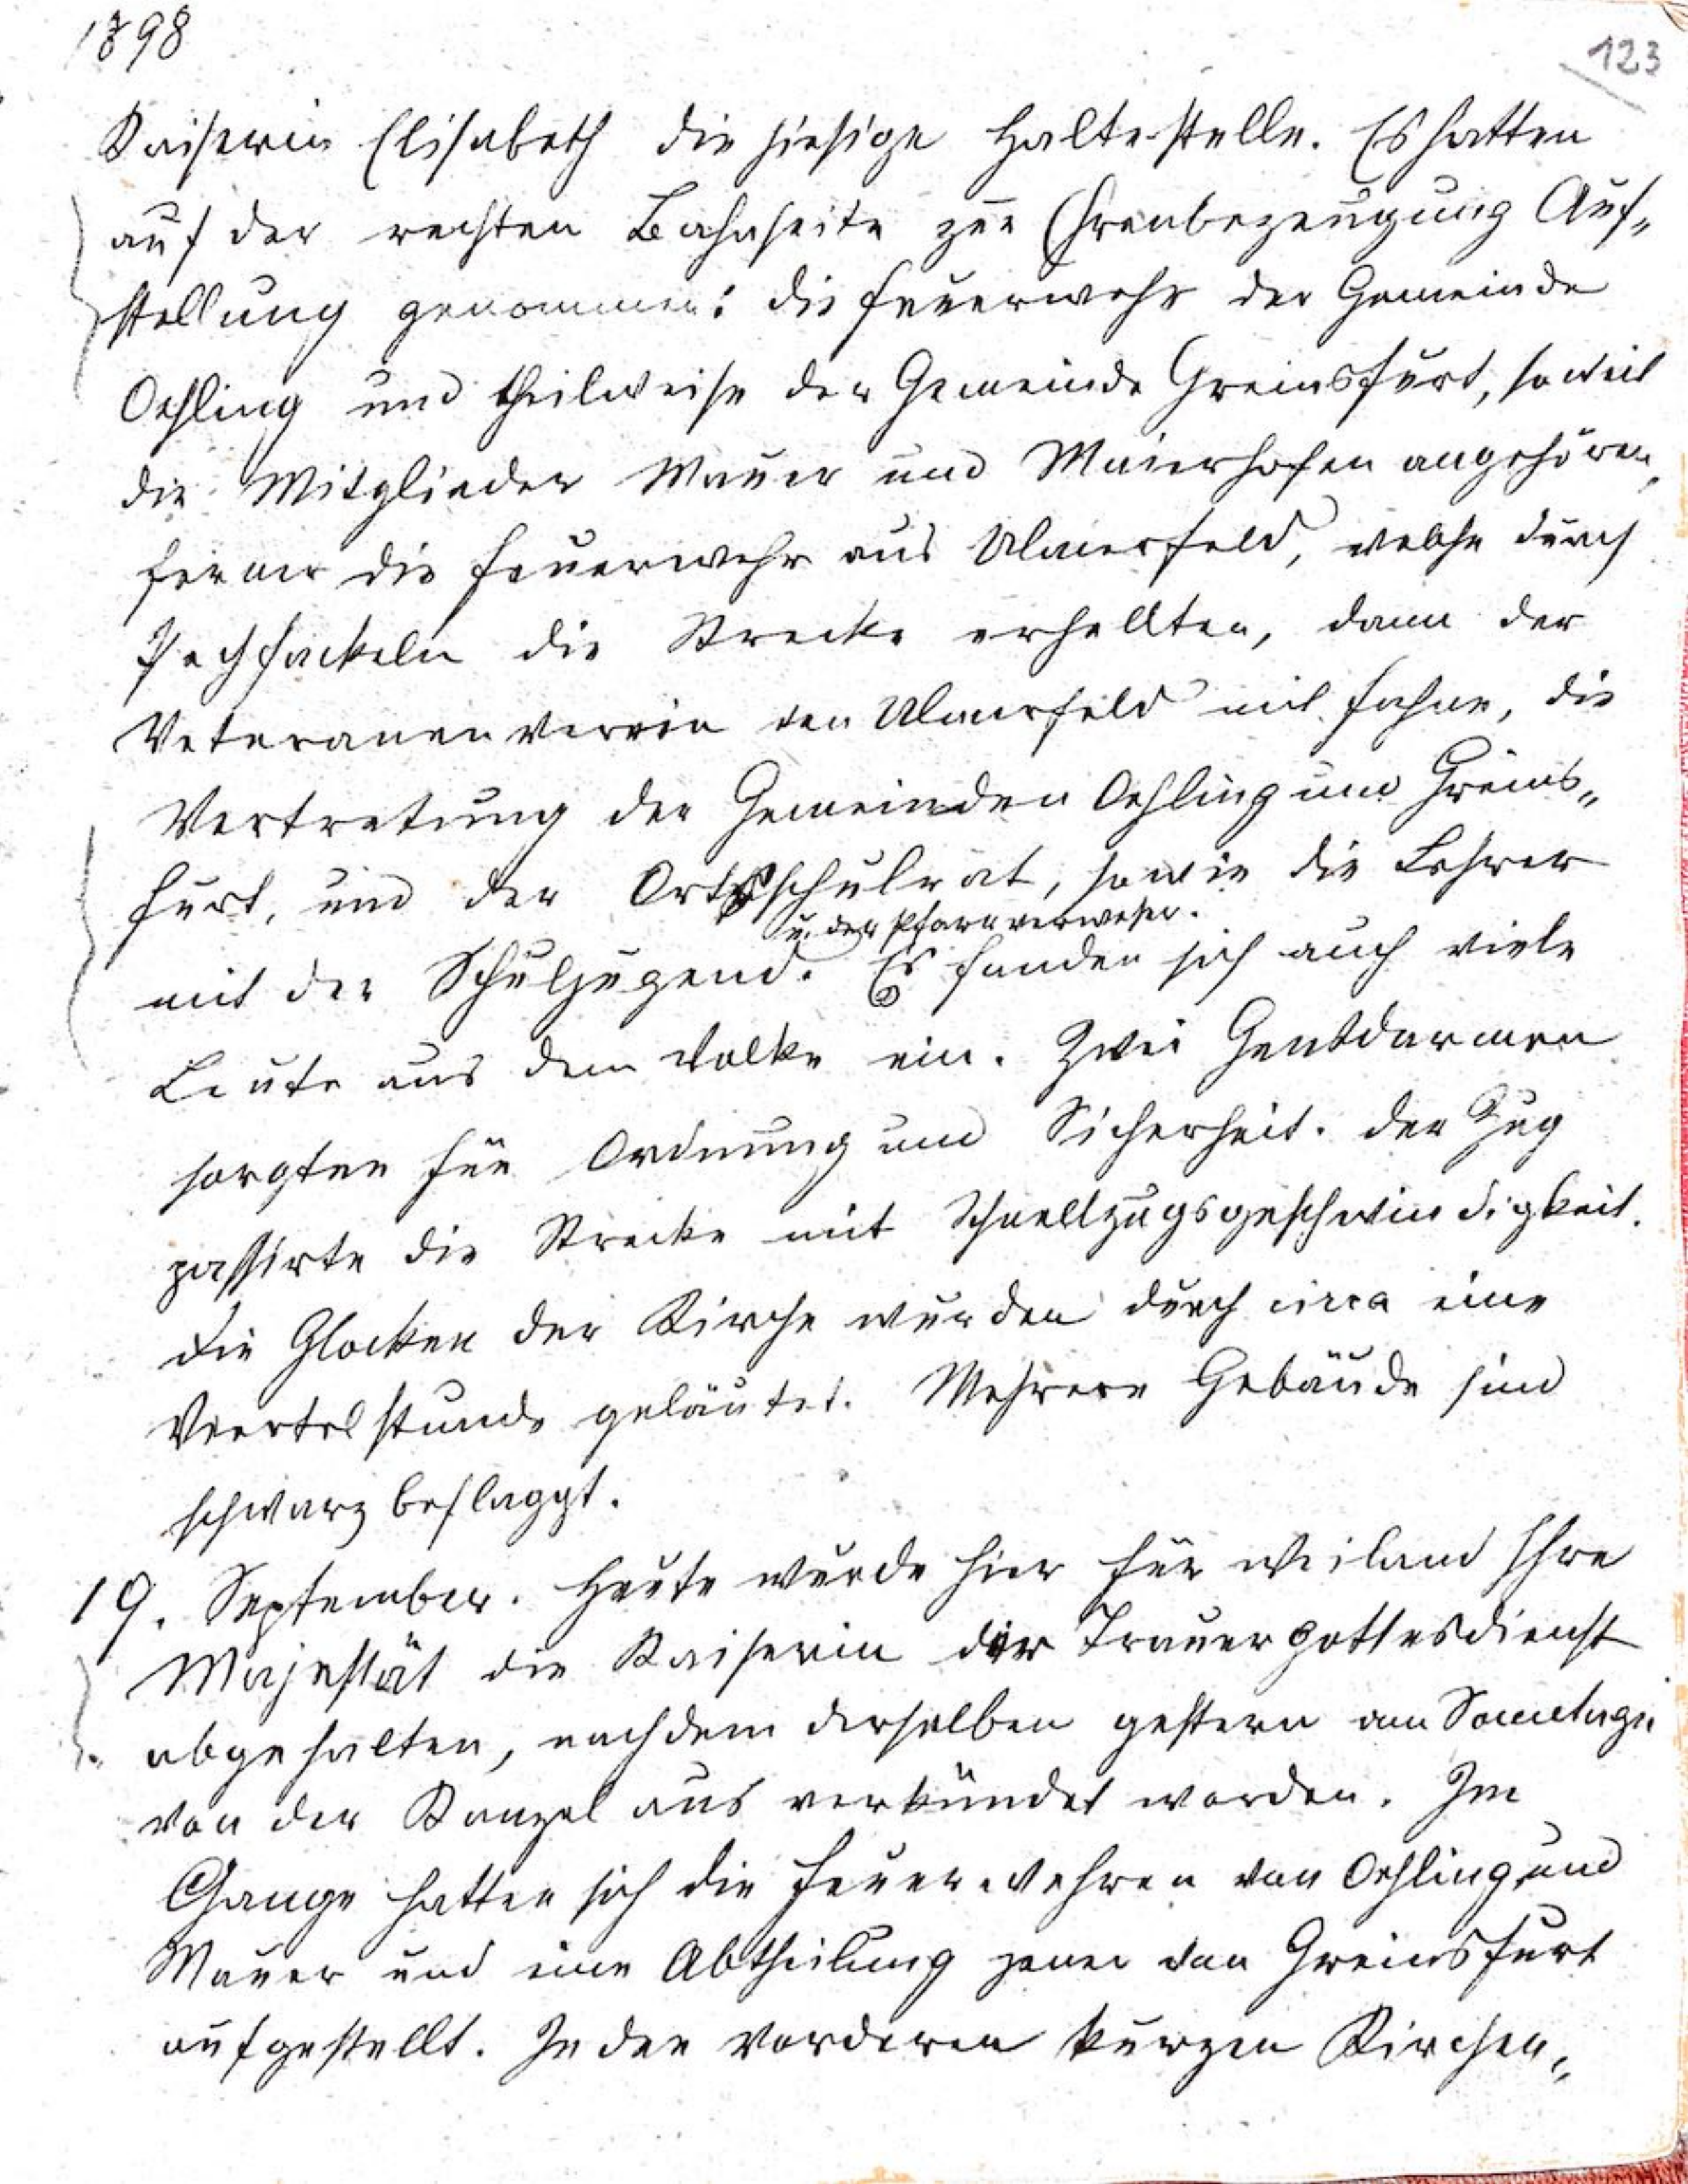 1898
123
Kaiserin Elisabeth die hiesige Haltestelle. Es hatten
auf der rechten Bahnseite zur Ehrenbezeugung Auf„
stellung genommen: die Feuerwehr der Gemeinde
Oehling und theilweise der Gemeinde Greinsfurt, soweit
die Mitglieder Mauer und Maierhofen angehören,
ferner die Feuerwehr aus Ulmerfeld, welche durch
Pechfackeln die Strecke erhellten, dann der
Veteranenverein von Ulmerfeld mit Fahne, die
Vertretung der Gemeinden Oehling und Greins„
furt, und der Ortsschulrat, sowie die Lehrer
u. der Pfarrverweser.
mit der Schuljugend. Es fanden sich auch viele
Leute aus dem Volke ein. Zwei Gensdarmen
sorgten für Ordnung und Sicherheit. Der Zug
passirte die Strecke mit Schnellzugsgeschwindigkeit.
Die Glocken der Kirche wurden durch circa eine
Viertelstunde geläutet. Mehrere Gebäude sind
schwarz beflaggt.
19. September. Heute wurde hier für weiland Ihre
Majestät die Kaiserin der Trauergottesdienst
abgehalten, nachdem derselben gestern am Sonntage
von der Kanzel aus verkündet worden. Im
Gange hatten sich die Feuerwehren von Oehling und
Mauer und eine Abtheilung jener von Greinsfurt
aufgestellt. In den vorderen kurzen Kirchen„